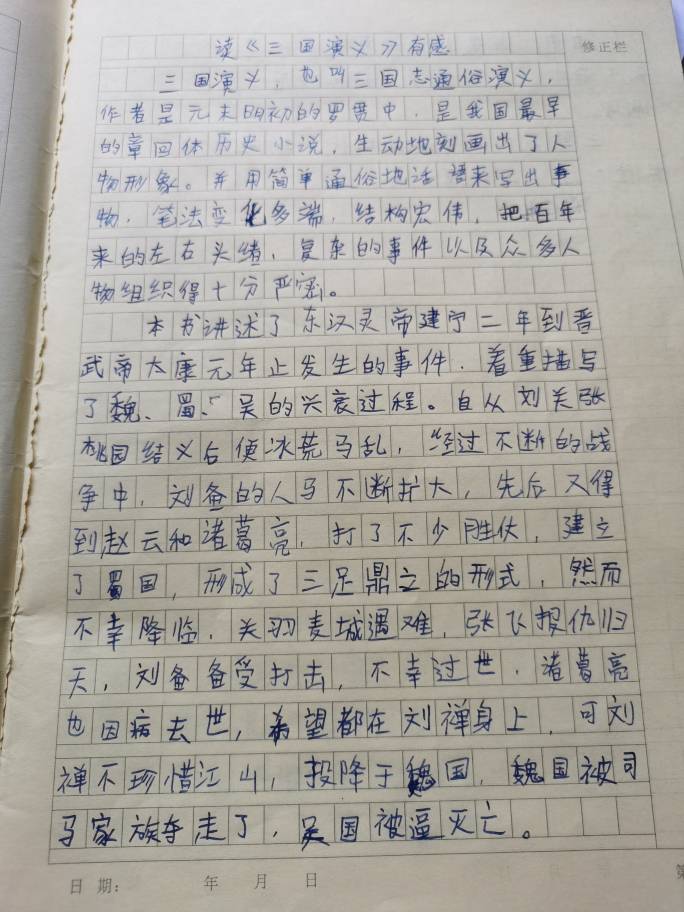 读《三国演义》有感
修正栏
三国演义，也叫三国志通俗演义，
作者是元末明初的罗贯中，是我国最早
的章回体历史小说，生动地刻画出了人
物形象。并用简单通俗地话语来写出事
物，笔法变化多端，结构宏伟，把百年
来的左右头绪，复杂的事件以及众多人
物组织得十分严密。
本书讲述了东汉灵帝建宁二年到晋
武帝太康元年止发生的事件，着重描写
了魏、蜀、吴的兴衰过程。自从刘关张
桃园结义后便冰荒马乱，经过不断的战
争中，刘备的人马不断扩大，先后又得
到赵云和诸葛亮，打了不少胜仗，建立
了蜀国，形成了三足鼎立的形式，然而
不幸降临，关羽麦城遇难，张飞报仇归
天，刘备备受打击，不幸过世，诸葛亮
也因病去世，希望都在刘禅身上，可刘
禅不珍惜江山，投降于魏国，魏国被司
马家族夺走了，吴国被逼灭亡。
日期： 年 月 日
第